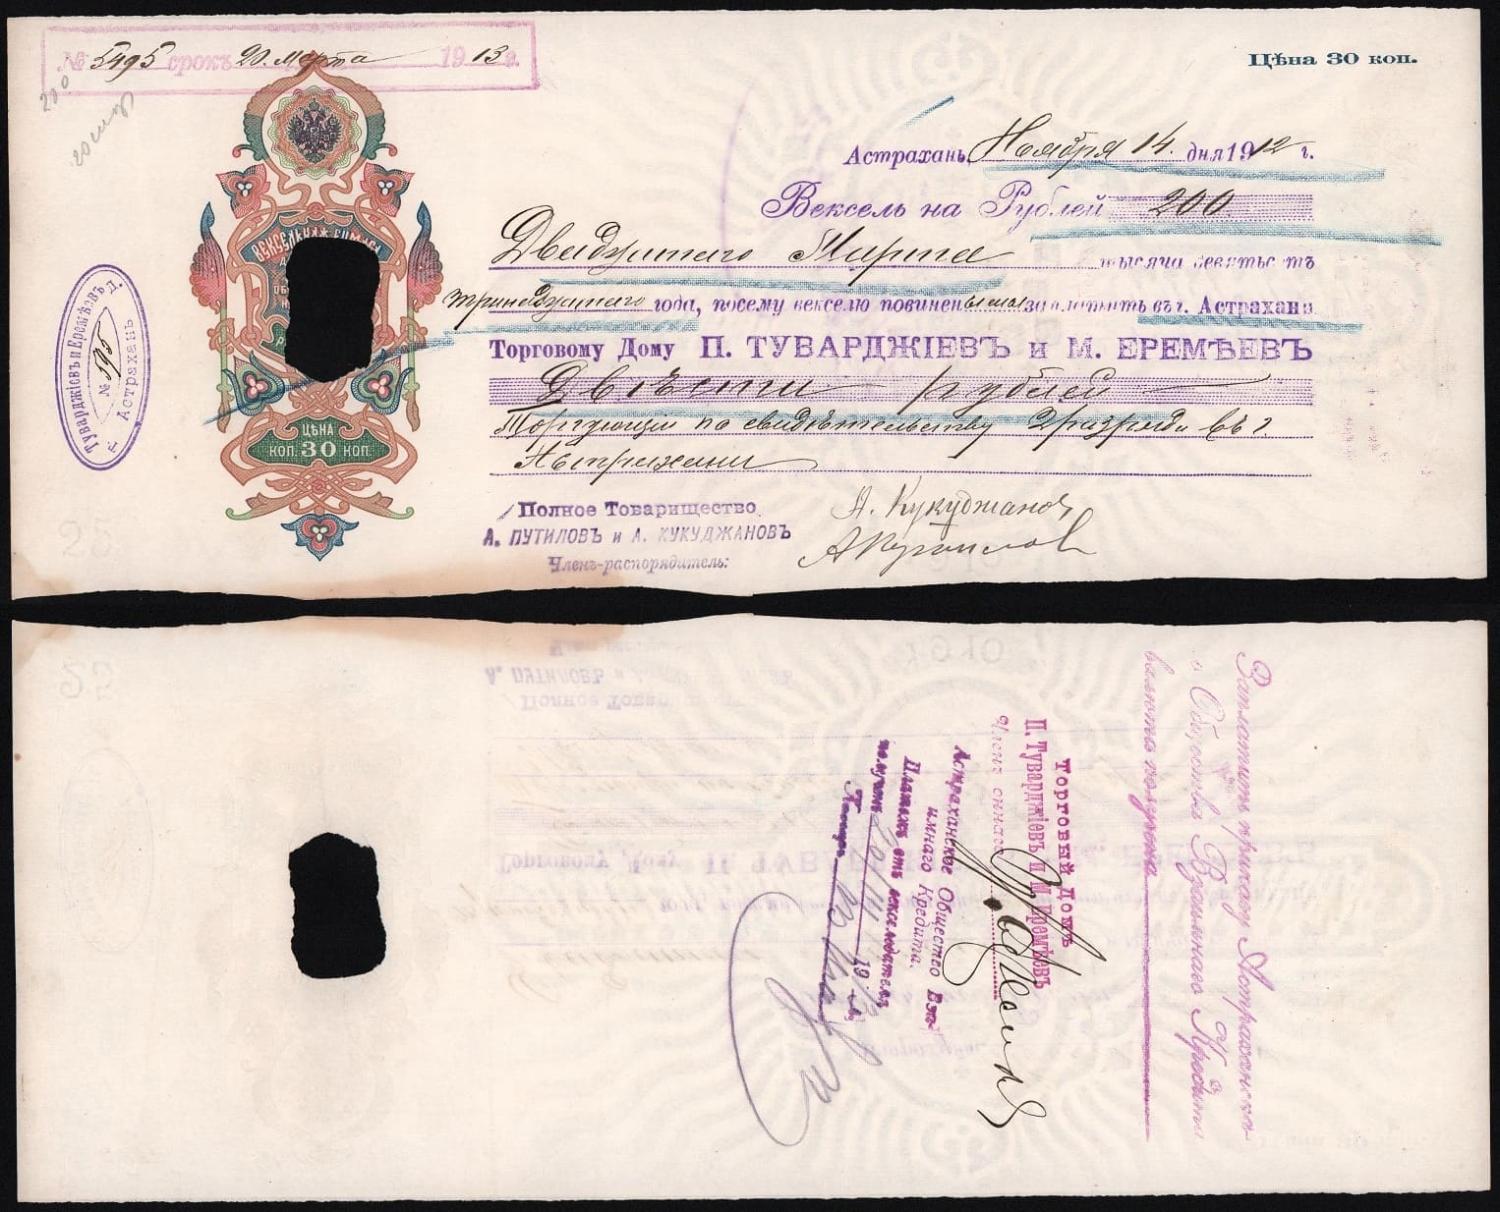 № 5495 срокъ 20. Марта 1913 г.
200
Цѣна 30 коп.
Астрахань, Ноября 14. дня 1912 г.
Вексель на Рублей 200
Двадцатаго Марта тысяча девятьсотъ
тринадцатаго года, посему векселю повинны мы заплатить въ г. Астрахани
Торговому Дому П. ТУВАРДЖІЕВЪ и М. ЕРЕМѢЕВЪ
Двѣсти рублей
Торгующіи по свидѣтельству 2 разряда въ г.
Астрахани
Полное Товарищество
А. ПУТИЛОВЪ и А. КУКУДЖАНОВЪ
Членъ-распорядитель:
А. Кукуджановъ
А Путиловъ
ВЕКСЕЛЬНАЯ БУМАГА
ЦѢНА
КОП. 30 КОП.
Туварджіевъ и Еремѣевъ
№ 5495
г. Астрахань
Заплатить приказу Астраханска-
го Общества Взаимнаго Кредита
валюта получена
Торговый Домъ
П. Туварджіевъ и М. Еремѣевъ
Астраханское Общество Вза-
имнаго Кредита.
Платежъ отъ векселедателя
получилъ 20/III 1913 г.